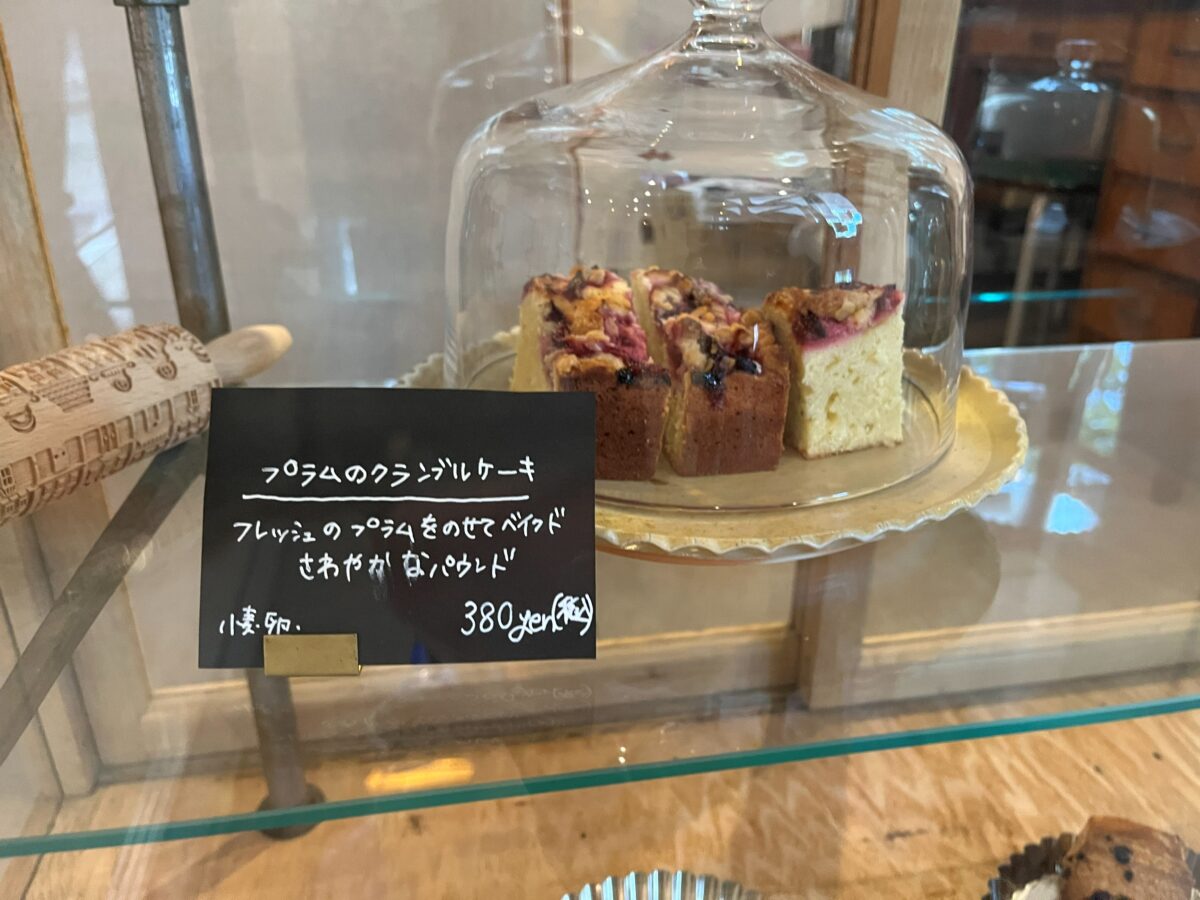 プラムのクランブルケーキ
フレッシュのプラムをのせてベイクド
さわやかなパウンド
小麦・卵.
380yen(税込)